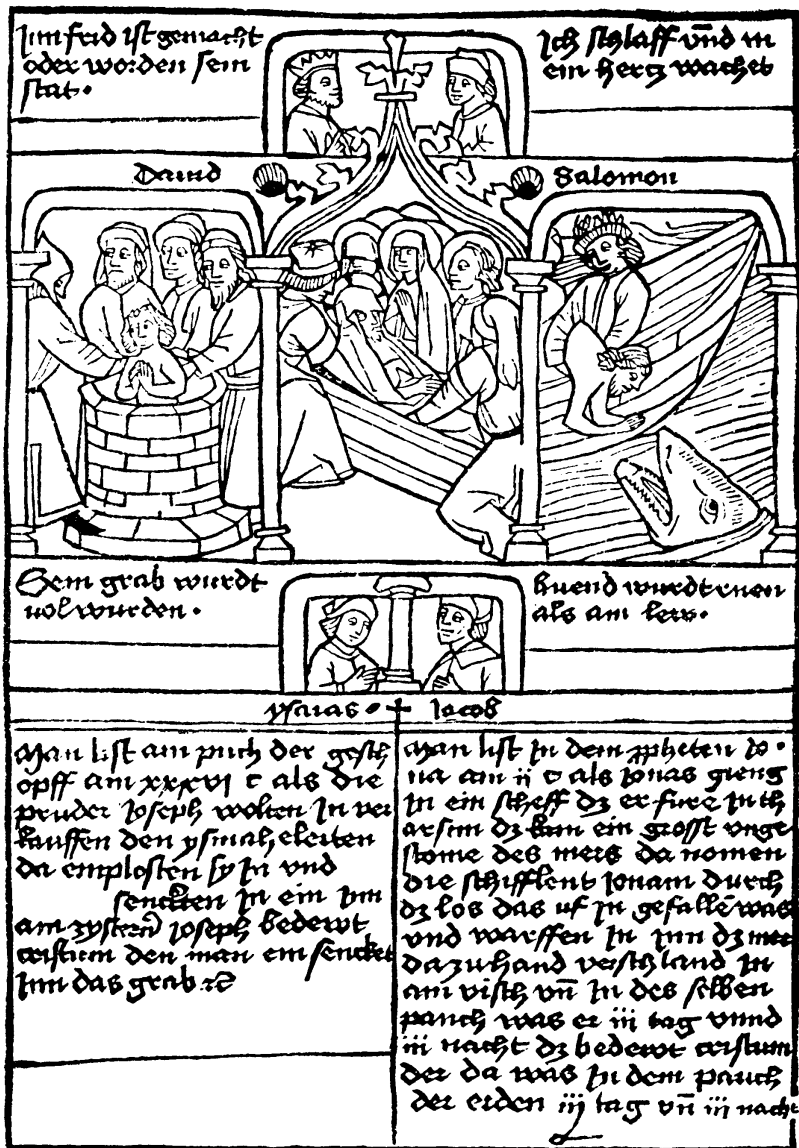 Im frid ist gemacht
oder worden sein
stat.
Ich schlaff vnd m
ein hertz wachet
Dauid
Salomon
Sein grab wurdt
vol wurden.
Ruend wurdt ruen
als am lew.
ysaias. Jacob
Man list am puch der gesch
opff am xxxvi c als die
pruder Joseph wolten In ver
kauffen den ysmaheleiten
da emplosten sy In vnd
senckten In ein Im
am zystern Joseph bedewt
cristum den man ein sencket
Inn das grab ⁊c̄
Man list In dem ꝓpheten Jo.
na am ii c als Jonas gieng
In ein scheff dz er fure In th
arsim dz kam ein grosst vnge
stome des mers da nomen
die schifflent Jonam durch
dz los das uf In gefallē was
vnd warffen In Inn dz mer
da zuhand verschland In
am visch vn̄ In des selben
pauch was er iii tag vnnd
iii nacht dz bedewt cristum
der da was In dem pauch
der erden iij tag vn̄ iii nacht